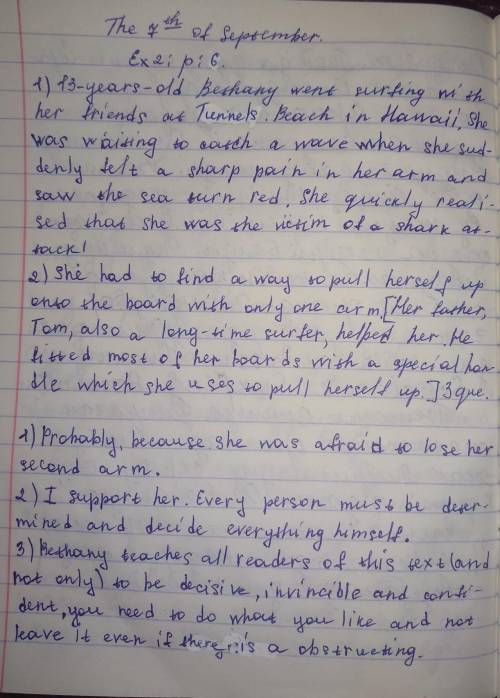 The 7th of September.
Ex 2; p; 6.
1) 13-years-old Bethany went surfing with
her friends at Tunnels. Beach in Hawaii. She
was waiting to catch a wave when she sud-
denly felt a sharp pain in her arm and
saw the sea turn red. She quickly reali-
sed that she was the victim of a shark at-
tack!
2) She had to find a way to pull herself up
onto the board with only one arm. [Her father,
Tom, also a long-time surfer, helped her. He
fitted most of her boards with a special han-
dle which she uses to pull herself up.] 3 que.
1) Probably, because she was afraid to lose her
second arm.
2) I support her. Every person must be deter-
mined and decide everything himself.
3) Bethany teaches all readers of this text (and
not only) to be decisive, invincible and confi-
dent, you need to do what you like and not
leave it even if there is a obstructing.